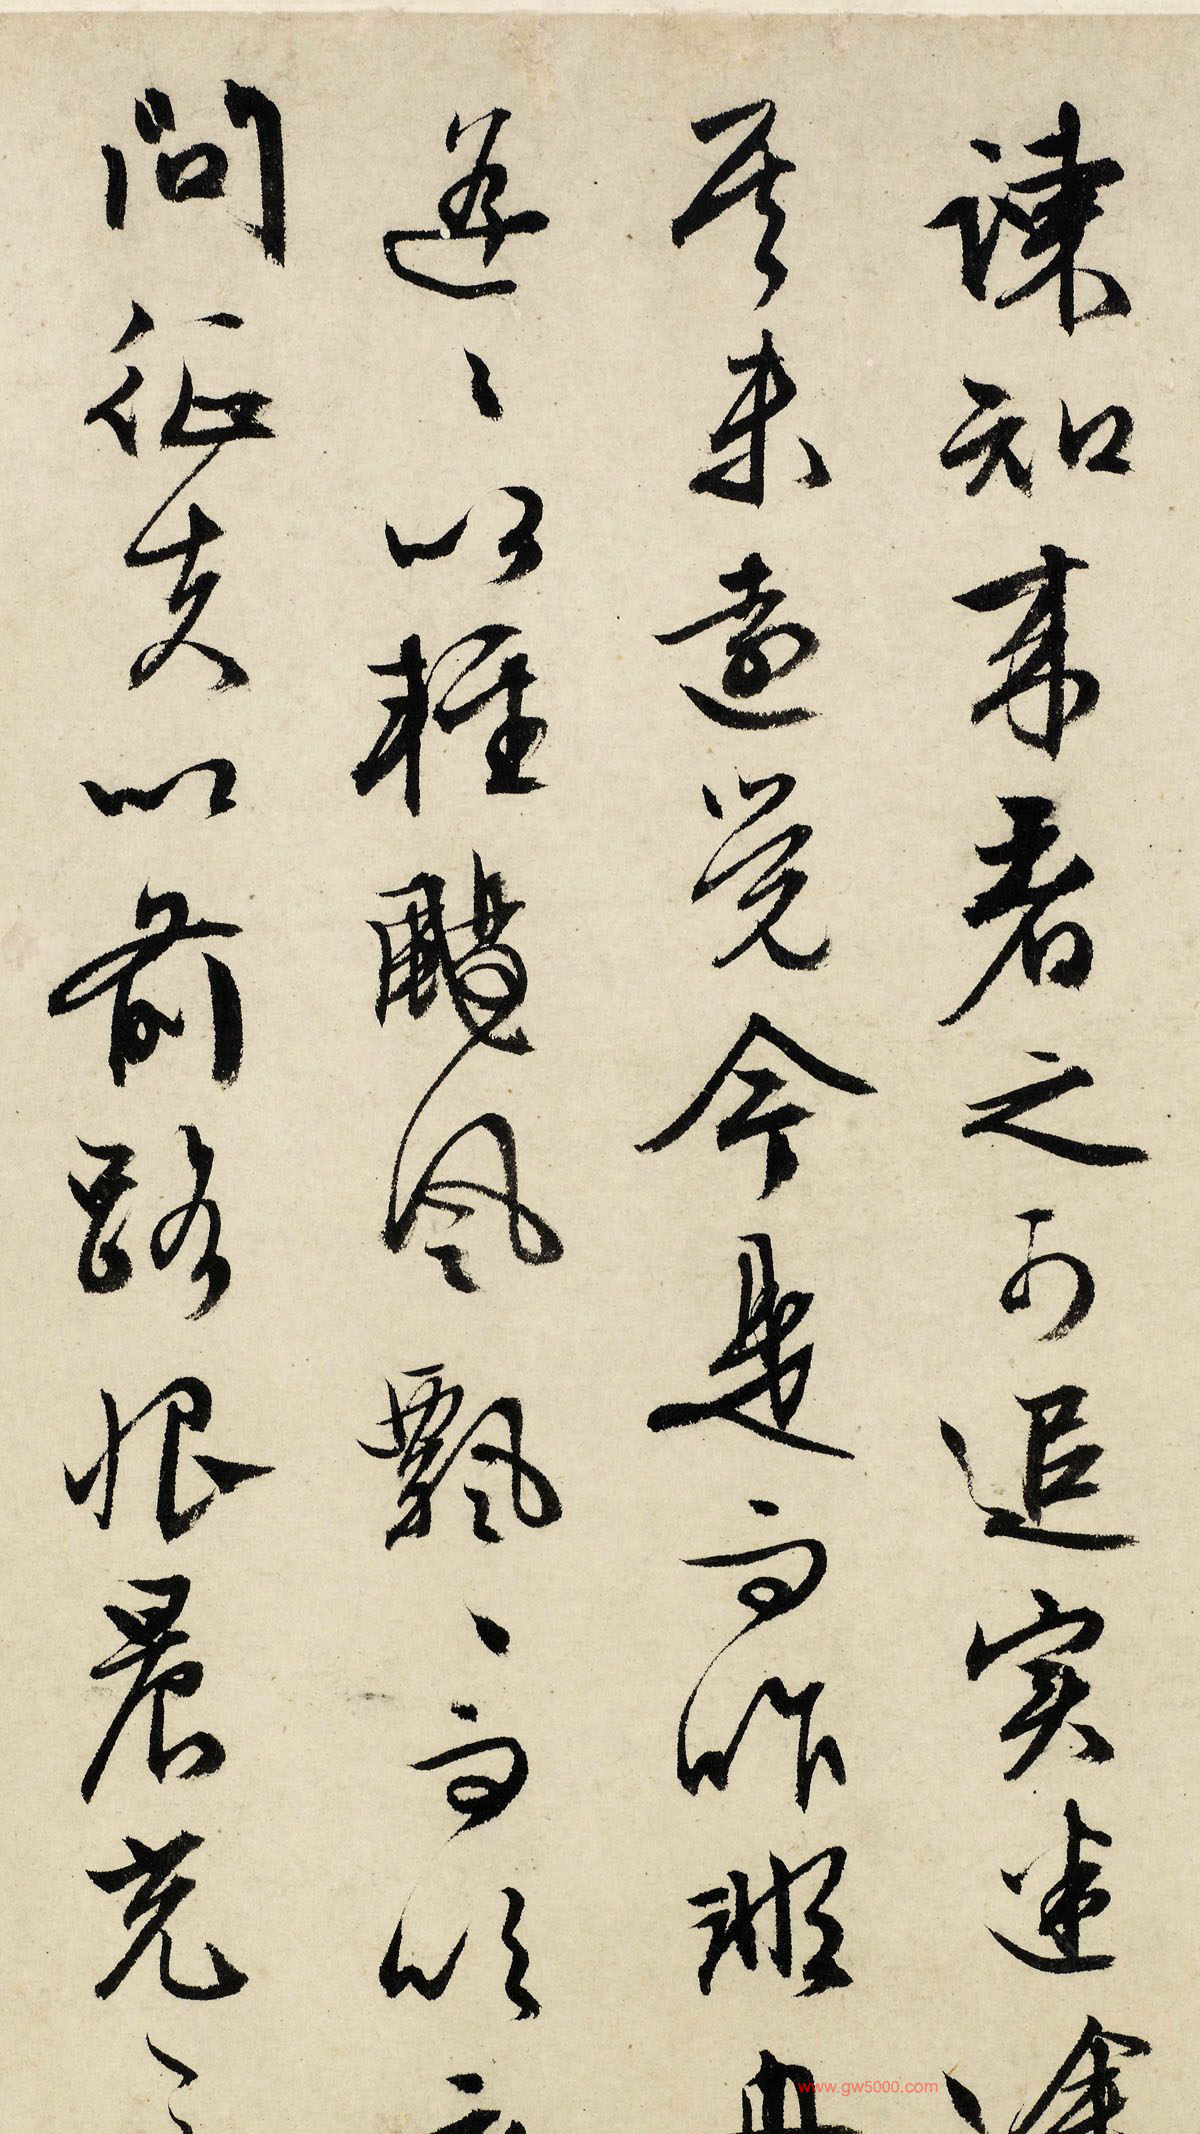 諫知来者之可追实迷途
其未遠觉今是而昨非舟
遥々以軽颺风飄々而吹衣
问征夫以前路恨晨光之
www.gw5000.com